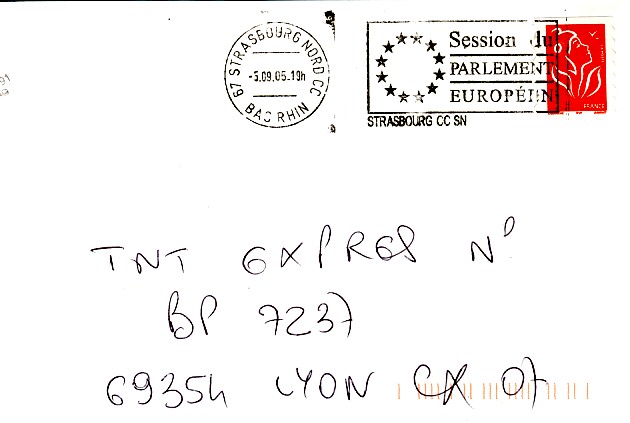 67 STRASBOURG NORD CC
-5.09.05.19h
BAS RHIN
Session du
PARLEMENT
EUROPÉEN
STRASBOURG CC SN
FRANCE
TNT EXPRES N°
BP 7237
69354 LYON CX 07